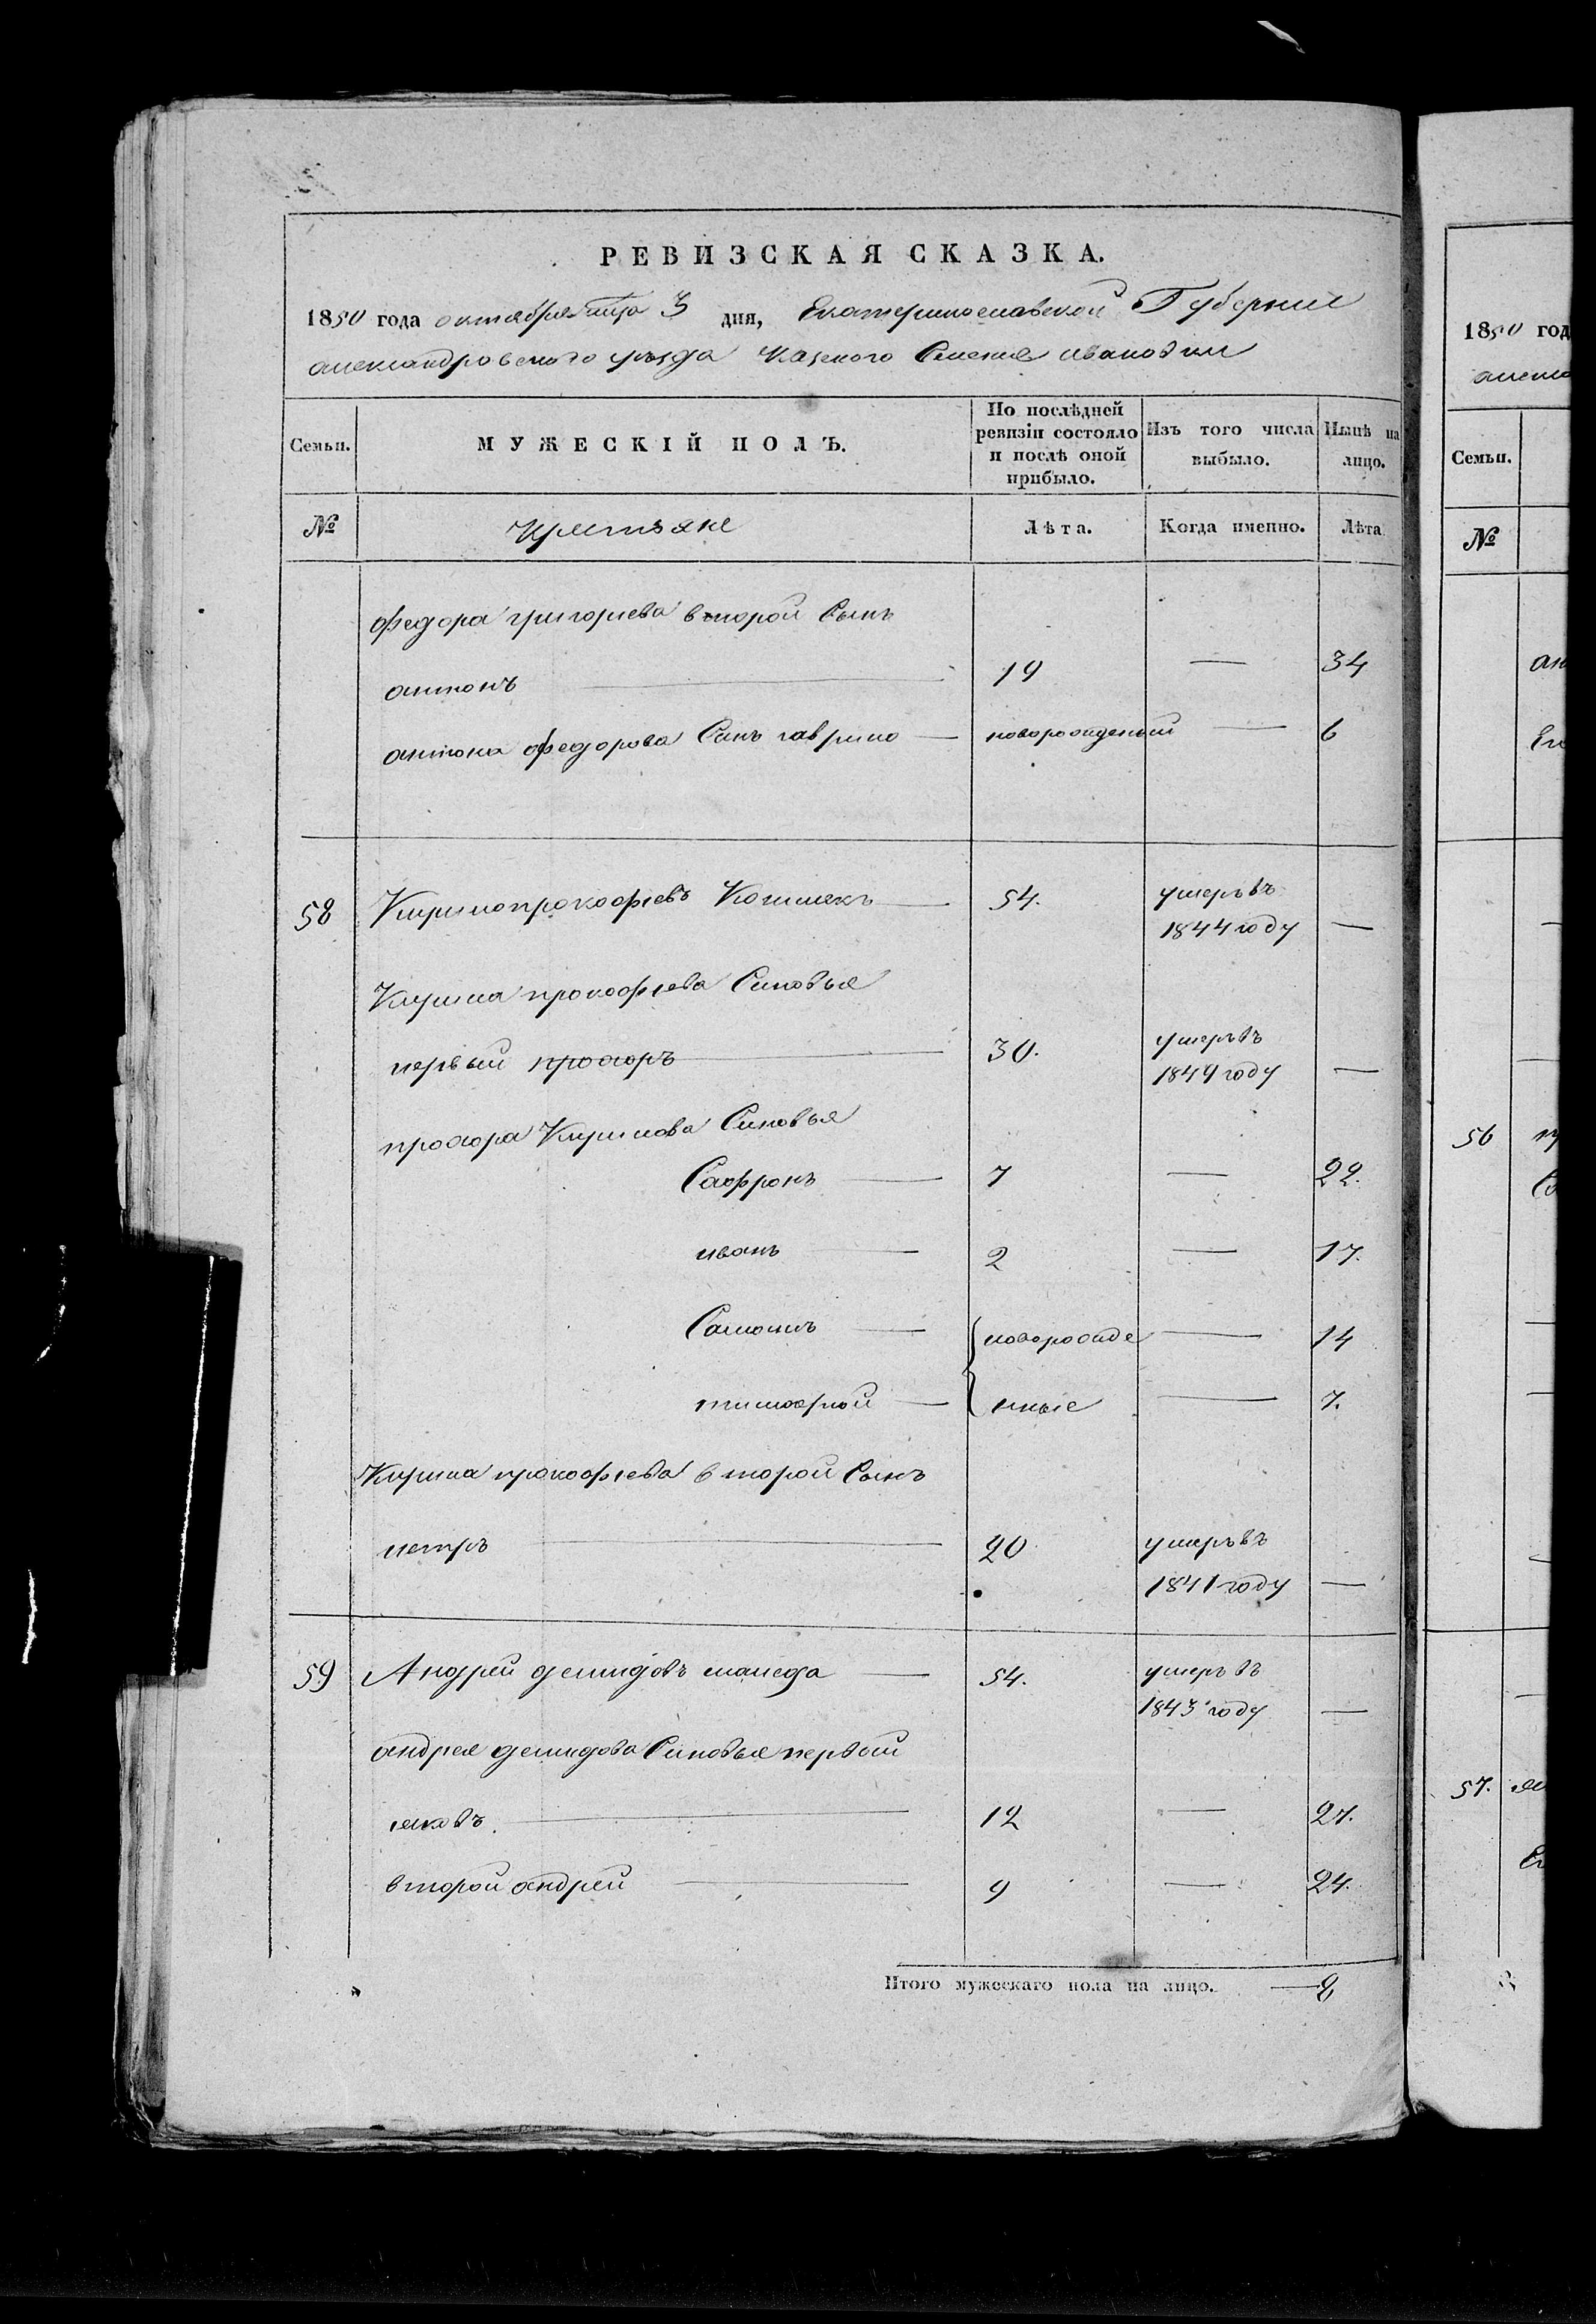 РЕВИЗСКАЯ СКАЗКА.
1850 года октября мца 3 дня, Екатеринославской Губернии
александровского уезда Казеного Селения ивановки
Семьи. МУЖЕСКІЙ ПОЛЪ. По послѣдней ревизіи состояло и послѣ оной прибыло. Изъ того числа выбыло. Нынѣ на лицо.
№ Крестьяне Лѣта. Когда именно. Лѣта
федора григориева второй Сынъ
антонъ 19 — 34
антона федорова Синъ гаврило — новорожденый — 6
58 Кирило прокофиевъ — 54. умеръ въ
1844 году —
Кирила прокофиева Синовья
первый прохоръ 30. умеръ въ
1849 году —
прохора Кирилова Синовья
Сафронъ — 7 — 22.
иванъ — 2 — 17.
Самоилъ — новорожде — 14
тимофей — нные — 7.
Кирила прокофиева второй Сынъ
петръ 20 умеръ въ
1841 году —
59 Андрей демидовъ — 54. умеръ въ
1843 году —
андрея демидова Синовья первый
яковъ 12 — 27.
второй андрей — 9 — 24.
Итого мужескаго пола на лицо. — 8
1850 год
Семьи.
№
56
57.